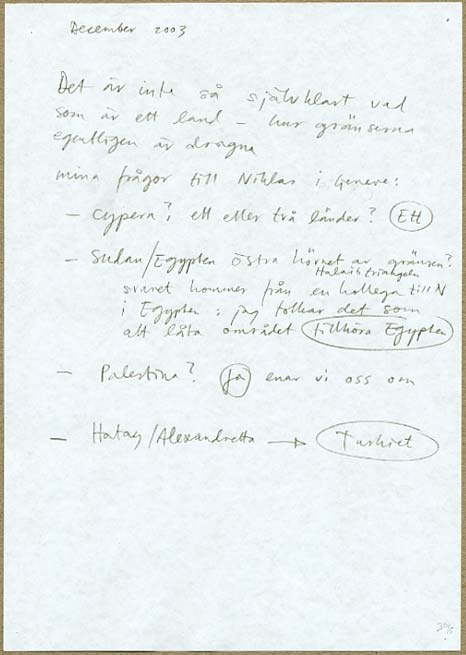 December 2003
Det är inte så självklart vad
som är ett land – hur gränserna
egentligen är dragna
mina frågor till Niklas i Geneve:
– Cypern?; ett eller två länder? Ett
– Sudan/Egypten östra hörnet av gränsen?
Halaib triangeln
svaret kommer från en kollega till N
i Egypten: jag tolkar det som
att låta området tillhöra Egypten
– Palestina? Ja enar vi oss om
– Hatay/Alexandretta → Turkiet